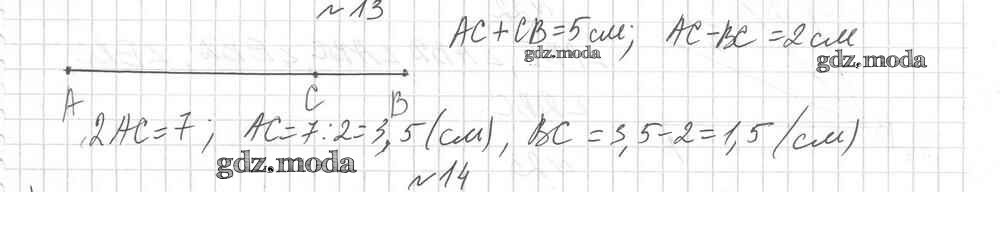 №13
AC+CB=5см; AC-BC=2см
gdz.moda
gdz.moda
A C B
2AC=7; AC=7:2=3,5(см), BC=3,5-2=1,5(см)
gdz.moda
№14